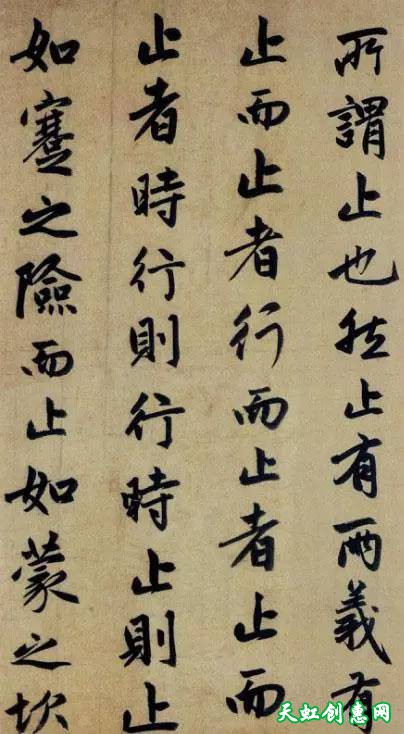 所謂止也然止有兩義有
止而止者行而止者止而
止者時行則行時止則止
如蹇之險而止如蒙之坎
天虹创惠网